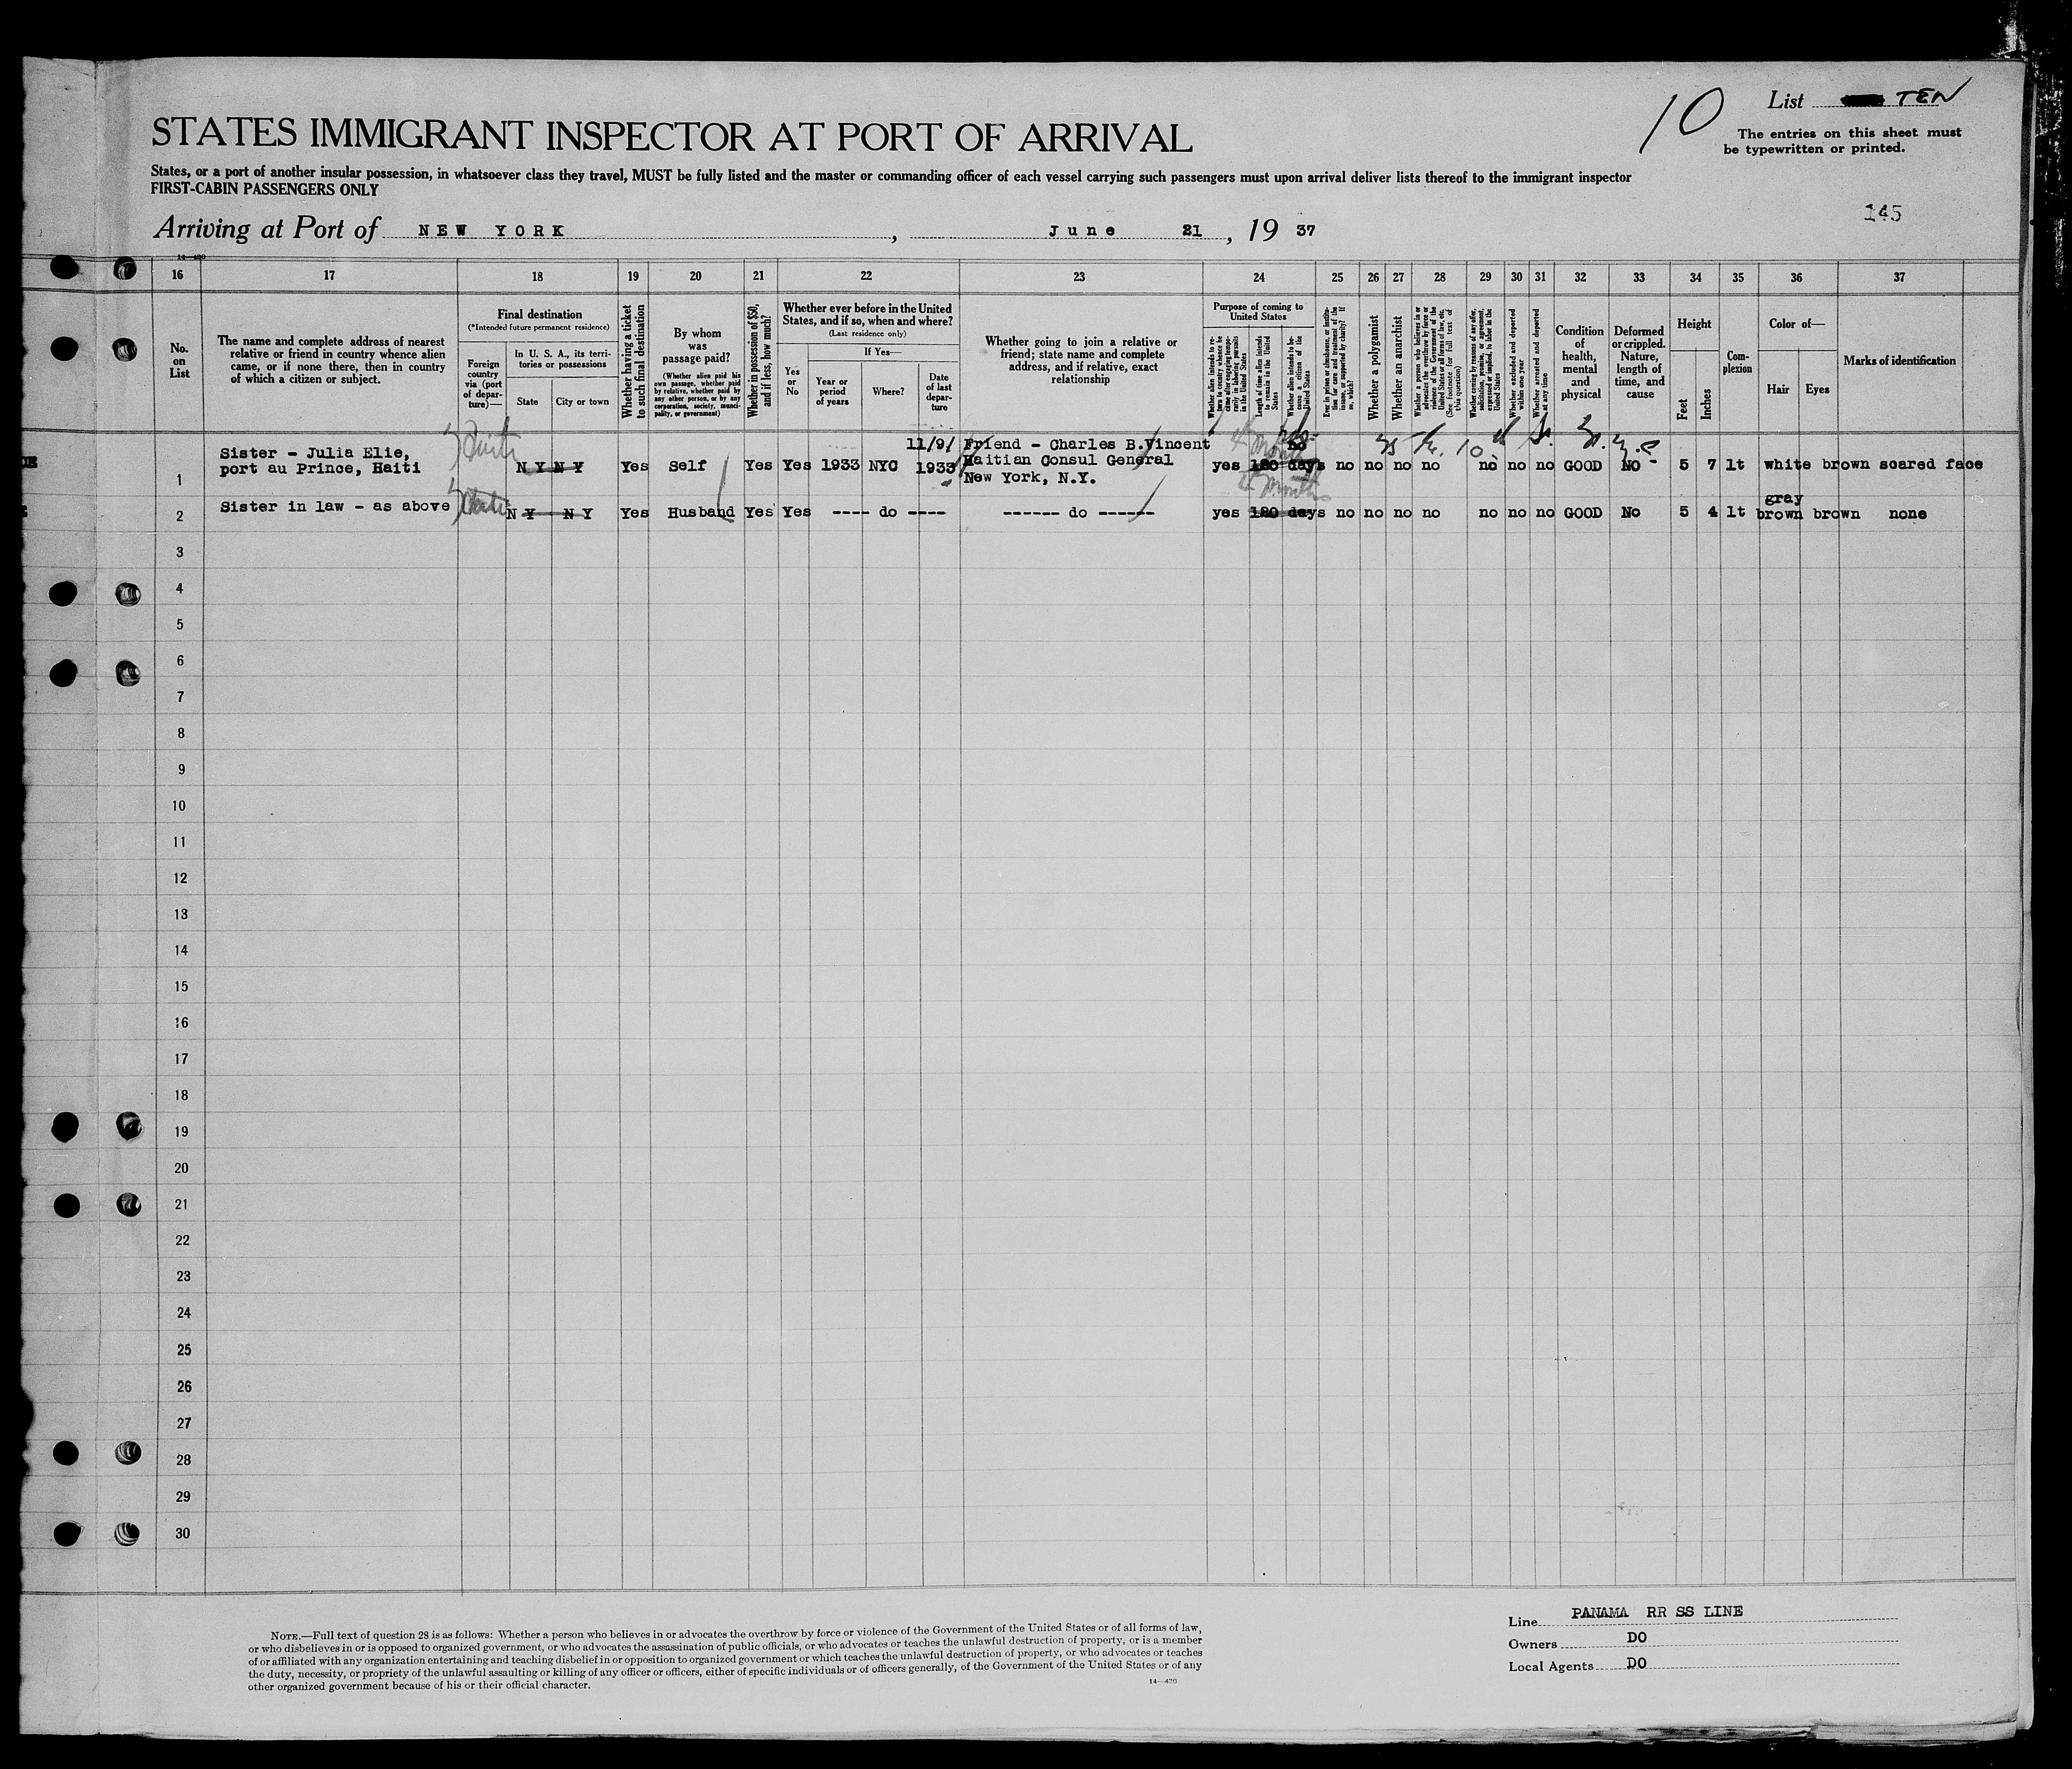 List TEN
10
The entries on this sheet must
be typewritten or printed.
STATES IMMIGRANT INSPECTOR AT PORT OF ARRIVAL
States, or a port of another insular possession, in whatsoever class they travel, MUST be fully listed and the master or commanding officer of each vessel carrying such passengers must upon arrival deliver lists thereof to the immigrant inspector
FIRST-CABIN PASSENGERS ONLY
145
Arriving at Port of NEW YORK, June 21, 19 37
14—420
16 17 18 19 20 21 22 23 24 25 26 27 28 29 30 31 32 33 34 35 36 37
No.
on
List
The name and complete address of nearest
relative or friend in country whence alien
came, or if none there, then in country
of which a citizen or subject.
Final destination
(*Intended future permanent residence)
Foreign
country
via (port
of depar-
ture)—
In U. S. A., its terri-
tories or possessions
State
City or town
Whether having a ticket
to such final destination
By whom
was
passage paid?
(Whether alien paid his
own passage, whether paid
by relative, whether paid by
any other person, or by any
corporation, society, munici-
pality, or government)
Whether in possession of $50,
and if less, how much?
Whether ever before in the United
States, and if so, when and where?
(Last residence only)
Yes
or
No
If Yes—
Year or
period
of years
Where?
Date
of last
depar-
ture
Whether going to join a relative or
friend; state name and complete
address, and if relative, exact
relationship
Purpose of coming to
United States
Whether alien intends to re-
turn to country whence he
came after engaging tempo-
rarily in laboring pursuits
in the United States
Length of time alien intends
to remain in the United
States
Whether alien intends to be-
come a citizen of the
United States
Ever in prison or almshouse, or institu-
tion for care and treatment of the
insane, or supported by charity? If
so, which?
Whether a polygamist
Whether an anarchist
Whether a person who believes in or
advocates the overthrow by force or
violence of the Government of the
United States or all forms of law, etc.
(See footnote for full text of
this question)
Whether coming by reasons of any offer,
solicitation, promise, or agreement,
expressed or implied, to labor in the
United States
Whether excluded and deported
within one year
Whether arrested and deported
at any time
Condition
of
health,
mental
and
physical
Deformed
or crippled.
Nature,
length of
time, and
cause
Height
Feet
Inches
Com-
plexion
Color of—
Hair
Eyes
Marks of identification
Sister - Julia Elie,
port au Prince, Haiti
1 Haiti N Y N Y Yes Self Yes Yes 1933 NYC 11/9/
1933
Friend - Charles B.Vincent
Haitian Consul General
New York, N.Y.
4 Months no
yes 180 days no no no no no no no GOOD NO 5 7 lt white brown scared face
4 Months
gray
2 Sister in law - as above Haiti N Y N Y Yes Husband Yes Yes ---- do ---- ------ do ------ yes 180 days no no no no no no no GOOD No 5 4 lt brown brown none
3
4
5
6
7
8
9
10
11
12
13
14
15
16
17
18
19
20
21
22
23
24
25
26
27
28
29
30
NOTE.—Full text of question 28 is as follows: Whether a person who believes in or advocates the overthrow by force or violence of the Government of the United States or of all forms of law,
or who disbelieves in or is opposed to organized government, or who advocates the assassination of public officials, or who advocates or teaches the unlawful destruction of property, or is a member
of or affiliated with any organization entertaining and teaching disbelief in or opposition to organized government or which teaches the unlawful destruction of property, or who advocates or teaches
the duty, necessity, or propriety of the unlawful assaulting or killing of any officer or officers, either of specific individuals or of officers generally, of the Government of the United States or of any
other organized government because of his or their official character.
14—420
Line PANAMA RR SS LINE
Owners DO
Local Agents DO